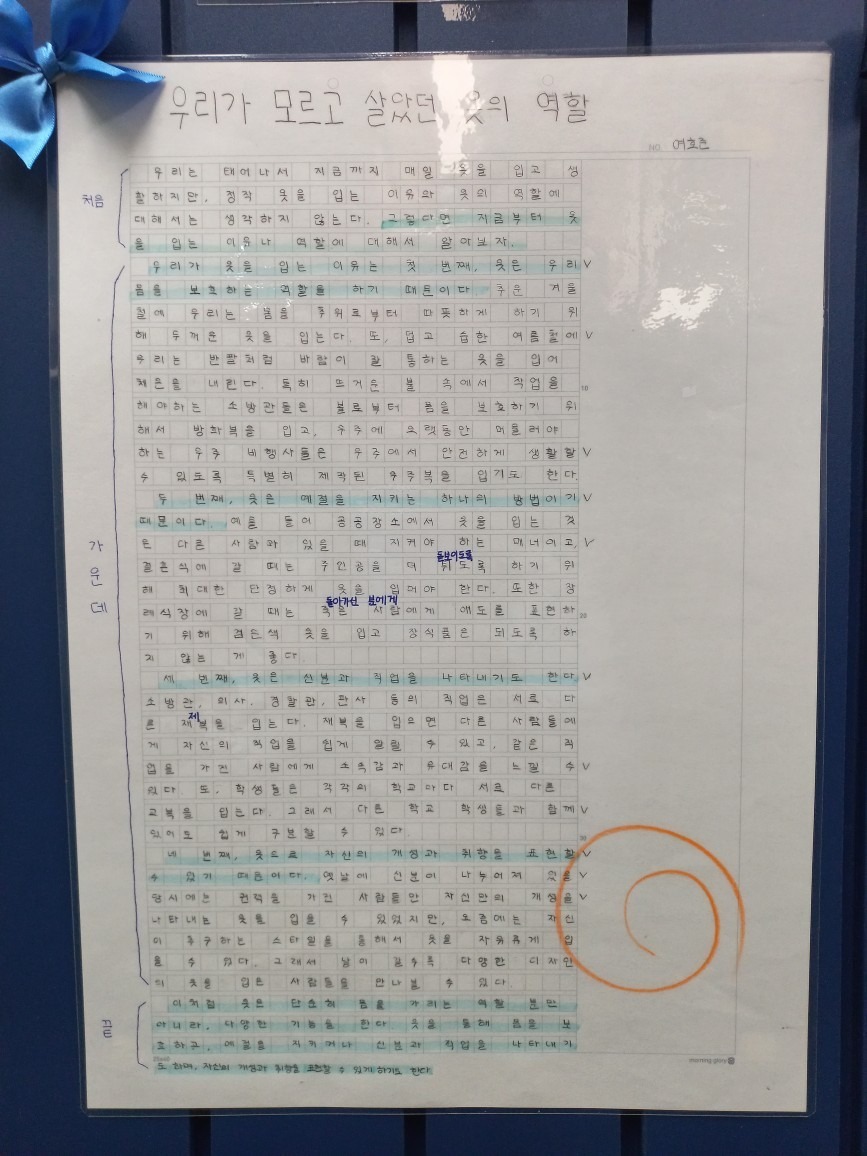 우리가 모르고 살았던 옷의 역할
NO. 여호준
처음
우리는 태어나서 지금까지 매일 옷을 입고 생
활하지만, 정작 옷을 입는 이유와 옷의 역할에
대해서는 생각하지 않는다. 그렇다면 지금부터 옷
을 입는 이유나 역할에 대해서 알아보자.
가운데
우리가 옷을 입는 이유는 첫 번째, 옷은 우리 V
몸을 보호하는 역할을 하기 때문이다. 추운 겨울
철에 우리는 몸을 추위로부터 따뜻하게 하기 위
해 두꺼운 옷을 입는다. 또, 덥고 습한 여름철에 V
우리는 반팔처럼 바람이 잘 통하는 옷을 입어
체온을 내린다. 특히 뜨거운 불 속에서 작업을
10
해야하는 소방관들은 불로부터 몸을 보호하기 위
해서 방화복을 입고, 우주에 오랫동안 머물러야
하는 우주 비행사들은 우주에서 안전하게 생활할 V
수 있도록 특별히 제작된 우주복을 입기도 한다.
두 번째, 옷은 예절을 지키는 하나의 방법이기 V
때문이다. 예를 들어 공공장소에서 옷을 입는 것
은 다른 사람과 있을 때 지켜야 하는 매너이고, V
돋보이도록
결혼식에 갈 때는 주인공을 더 튀도록 하기 위
해 최대한 단정하게 옷을 입어야 한다. 또한 장
돌아가신 분에게
례식장에 갈 때는 죽은 사람에게 애도를 표현하
20
기 위해 검은색 옷을 입고 장식품은 되도록 하
지 않는 게 좋다.
세 번째, 옷은 신분과 직업을 나타내기도 한다. V
소방관, 의사, 경찰관, 판사 등의 직업은 서로 다
제
른 재복을 입는다. 재복을 입으면 다른 사람들에
게 자신의 직업을 쉽게 알릴 수 있고, 같은 직
업을 가진 사람에게 소속감과 유대감을 느낄 수 V
있다. 또, 학생들은 각각의 학교마다 서로 다른
교복을 입는다. 그래서 다른 학교 학생들과 함께 V
있어도 쉽게 구분할 수 있다.
30
네 번째, 옷으로 자신의 개성과 취향을 표현할 V
수 있기 때문이다. 옛날에 신분이 나누어져 있을 V
당시에는 권력을 가진 사람들만 자신만의 개성을 V
나타내는 옷을 입을 수 있었지만, 요즘에는 자신
이 추구하는 스타일을 통해서 옷을 자유롭게 입
을 수 있다. 그래서 날이 갈수록 다양한 디자인
의 옷을 입은 사람들을 만나볼 수 있다.
끝
이처럼 옷은 단순히 몸을 가리는 역할 뿐만
아니라, 다양한 기능을 한다 옷을 통해 몸을 보
호하고, 예절을 지키거나 신분과 직업을 나타내기
도 하며, 자신의 개성과 취향을 표현할 수 있게 하기도 한다
morning glory